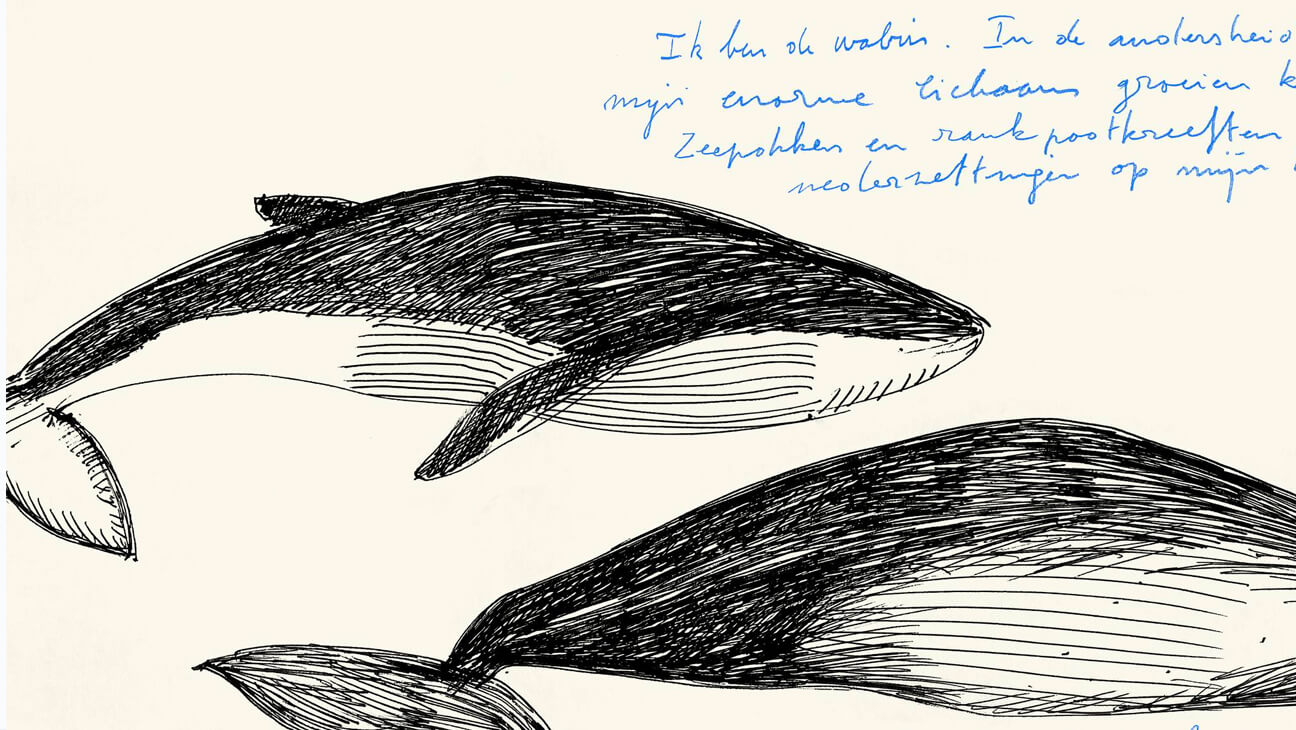 Ik ben de walvis. In de andersheid
mijn enorme lichaam groeien
Zeepokken en rankpootkreeften
nederzettingen op mijn